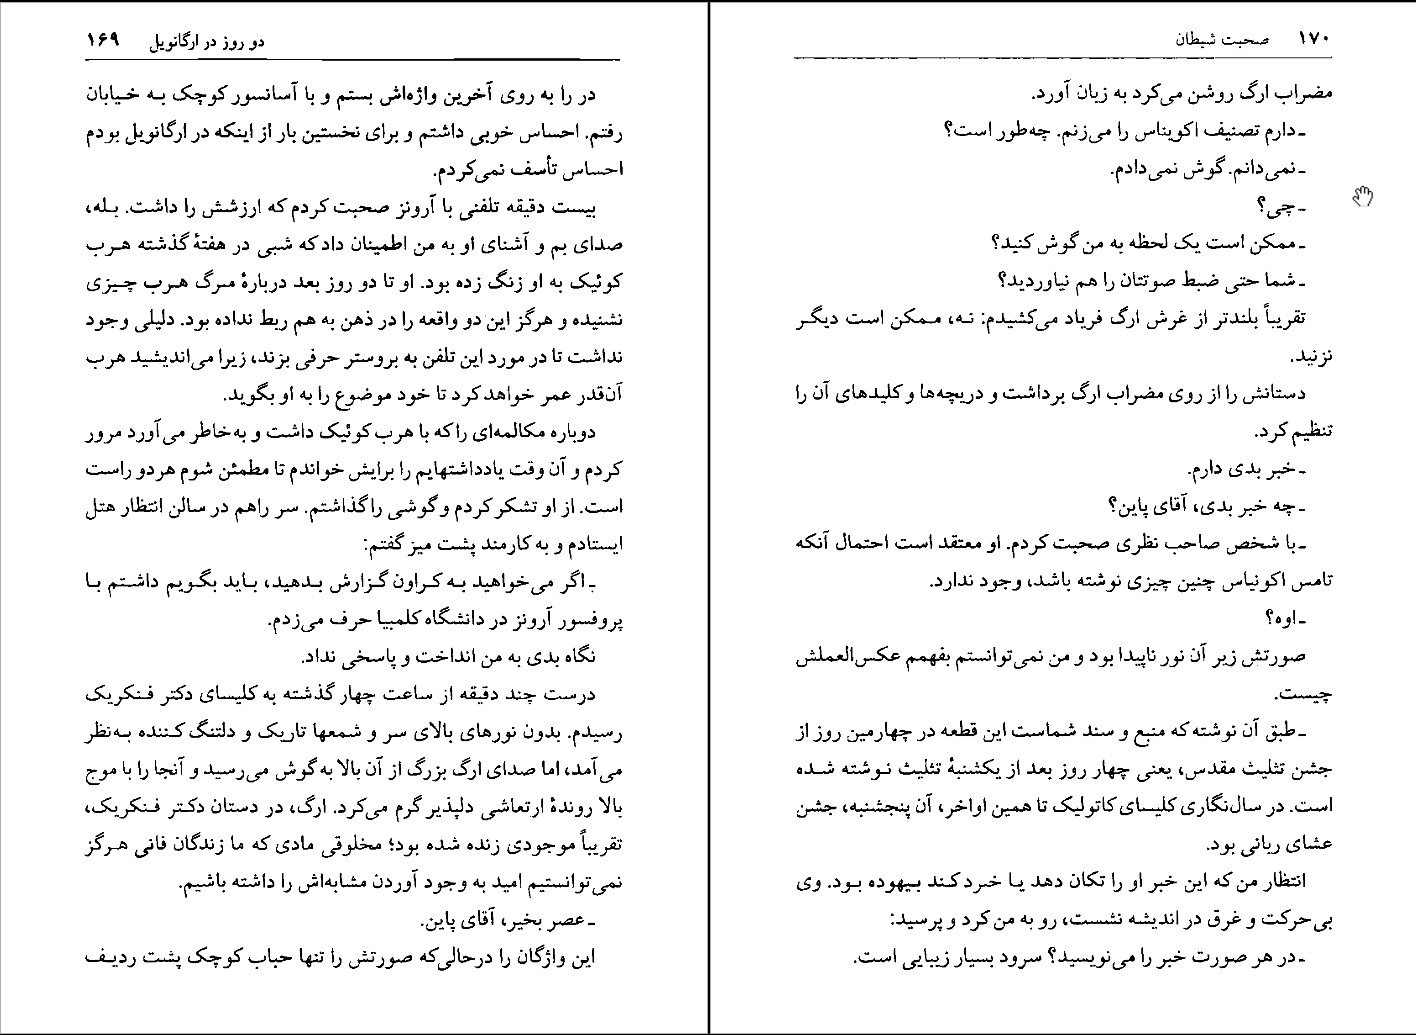 دو روز در ارگانویل ۱۶۹
در را به روی آخرین واژه‌اش بستم و با آسانسور کوچک به خیابان
رفتم. احساس خوبی داشتم و برای نخستین بار از اینکه در ارگانویل بودم
احساس تأسف نمی‌کردم.
بیست دقیقه تلفنی با آرونز صحبت کردم که ارزشش را داشت. بله،
صدای بم و آشنای او به من اطمینان داد که شبی در هفتهٔ گذشته هرب
کوئیک به او زنگ زده بود. او تا دو روز بعد دربارهٔ مرگ هرب چیزی
نشنیده و هرگز این دو واقعه را در ذهن به هم ربط نداده بود. دلیلی وجود
نداشت تا در مورد این تلفن به بروستر حرفی بزند، زیرا می‌اندیشید هرب
آن‌قدر عمر خواهد کرد تا خود موضوع را به او بگوید.
دوباره مکالمه‌ای را که با هرب کوئیک داشت و به‌خاطر می‌آورد مرور
کردم و آن وقت یادداشتهایم را برایش خواندم تا مطمئن شوم هر دو راست
است. از او تشکر کردم و گوشی را گذاشتم. سر راهم در سالن انتظار هتل
ایستادم و به کارمند پشت میز گفتم:
ـ اگر می‌خواهید به کراون گزارش بدهید، باید بگویم داشتم با
پروفسور آرونز در دانشگاه کلمبیا حرف می‌زدم.
نگاه بدی به من انداخت و پاسخی نداد.
درست چند دقیقه از ساعت چهار گذشته به کلیسای دکتر فنکریک
رسیدم. بدون نورهای بالای سر و شمعها تاریک و دلتنگ کننده به‌نظر
می‌آمد، اما صدای ارگ بزرگ از آن بالا به گوش می‌رسید و آنجا را با موج
بالا روندهٔ ارتعاشی دلپذیر گرم می‌کرد. ارگ، در دستان دکتر فنکریک،
تقریباً موجودی زنده شده بود؛ مخلوقی مادی که ما زندگان فانی هرگز
نمی‌توانستیم امید به وجود آوردن مشابه‌اش را داشته باشیم.
ـ عصر بخیر، آقای پاین.
این واژگان را درحالی‌که صورتش را تنها حباب کوچک پشت ردیف
۱۷۰ صحبت شیطان
مضراب ارگ روشن می‌کرد به زبان آورد.
ـ دارم تصنیف اکویناس را می‌زنم. چه‌طور است؟
ـ نمی‌دانم. گوش نمی‌دادم.
ـ چی؟
ـ ممکن است یک لحظه به من گوش کنید؟
ـ شما حتی ضبط صوتتان را هم نیاوردید؟
تقریباً بلندتر از غرش ارگ فریاد می‌کشیدم: نه، ممکن است دیگر
نزنید.
دستانش را از روی مضراب ارگ برداشت و دریچه‌ها و کلیدهای آن را
تنظیم کرد.
ـ خبر بدی دارم.
ـ چه خبر بدی، آقای پاین؟
ـ با شخص صاحب نظری صحبت کردم. او معتقد است احتمال آنکه
تامس اکونیاس چنین چیزی نوشته باشد، وجود ندارد.
ـ اوه؟
صورتش زیر آن نور ناپیدا بود و من نمی‌توانستم بفهمم عکس‌العملش
چیست.
ـ طبق آن نوشته که منبع و سند شماست این قطعه در چهارمین روز از
جشن تثلیث مقدس، یعنی چهار روز بعد از یکشنبهٔ تثلیث نوشته شده
است. در سال‌نگاری کلیسای کاتولیک تا همین اواخر، آن پنجشنبه، جشن
عشای ربانی بود.
انتظار من که این خبر او را تکان دهد یا خرد کند بیهوده بود. وی
بی‌حرکت و غرق در اندیشه نشست، رو به من کرد و پرسید:
ـ در هر صورت خبر را می‌نویسید؟ سرود بسیار زیبایی است.